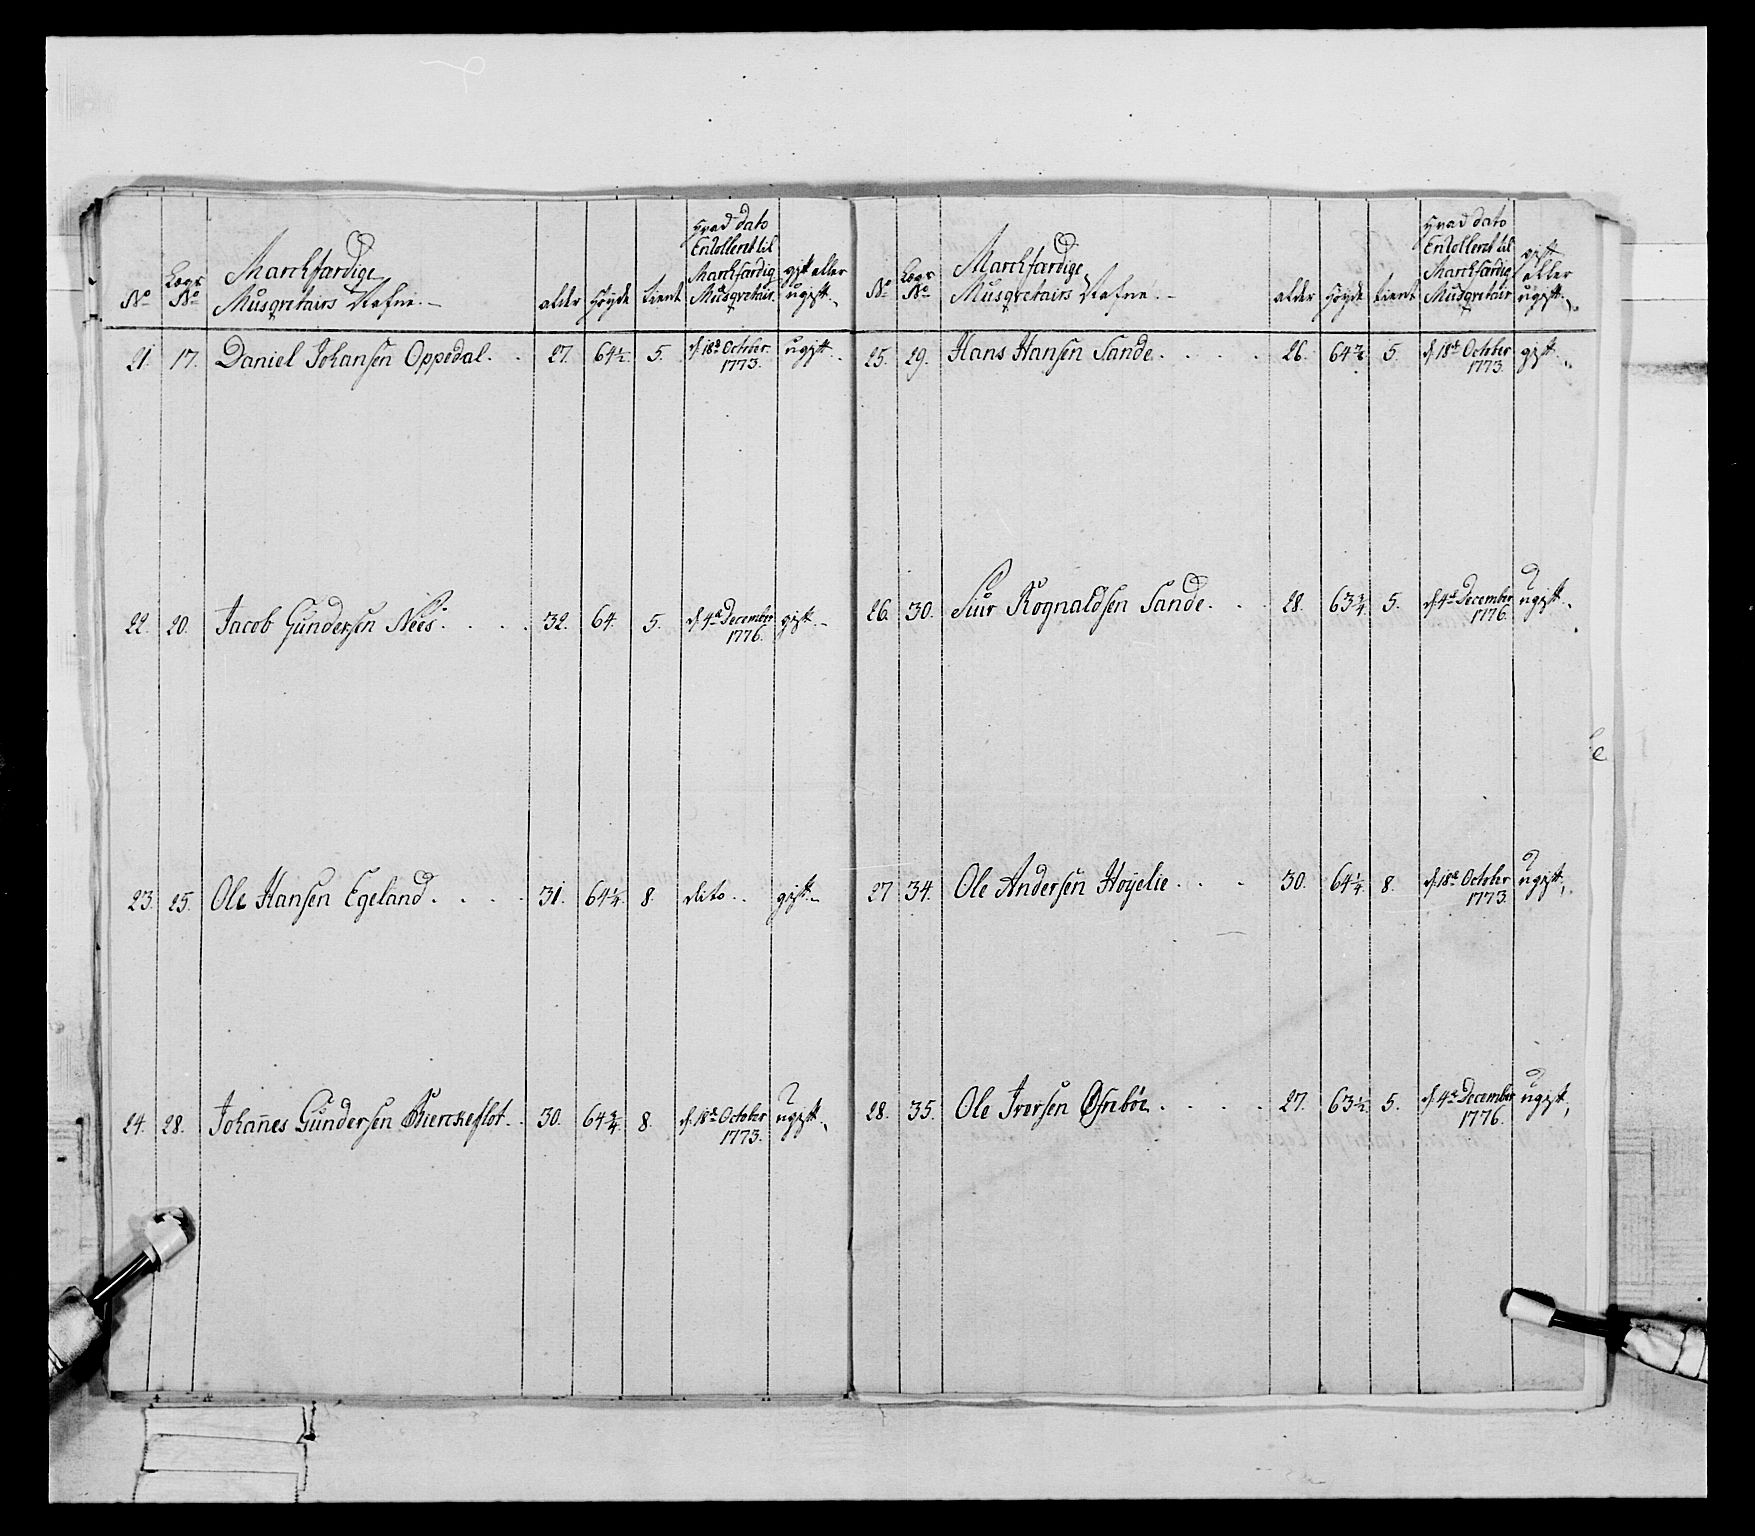 No
Lægs No
Marchfærdige
Musqvetairs Nafne.
alder
höyde
tient
hvad dato
Enrolleret til
Marchfærdig
Musqvetair.
gift eller
ugift.
21. 17. Daniel Johansen Oppedal. 27. 64½. 5. d. 18de October 1773. ugift.
22. 20. Jacob Gundersen Nees. 32. 64. 5. d. 4de December 1776. gift.
23. 25. Ole Hansen Egeland. 31. 64¼. 8. dito. gift.
24. 28. Johañes Gundersen Bierckeflot. 30. 64¾. 8. d. 18de October 1773. ugift.
No
Lægs No
Marchfærdige
Musqvetairs Nafne.
alder
höyde
tient
hvad dato
Enrolleret til
Marchfærdig
Musqvetair
gift
eller
ugift.
25. 29. Hans Hansen Sande. 26. 5. d. 18de October 1773. gift.
26. 30. Siur Rognaldsen Sande. 28. 63¾. 5. d. 4de December 1776. ugift.
27 34. Ole Andersen Høyelie. 30. 64¼. 8. d. 18de October 1773. ugift.
28. 35. Ole Iversen 27. 63½. 5. d. 4de December 1776. ugift.